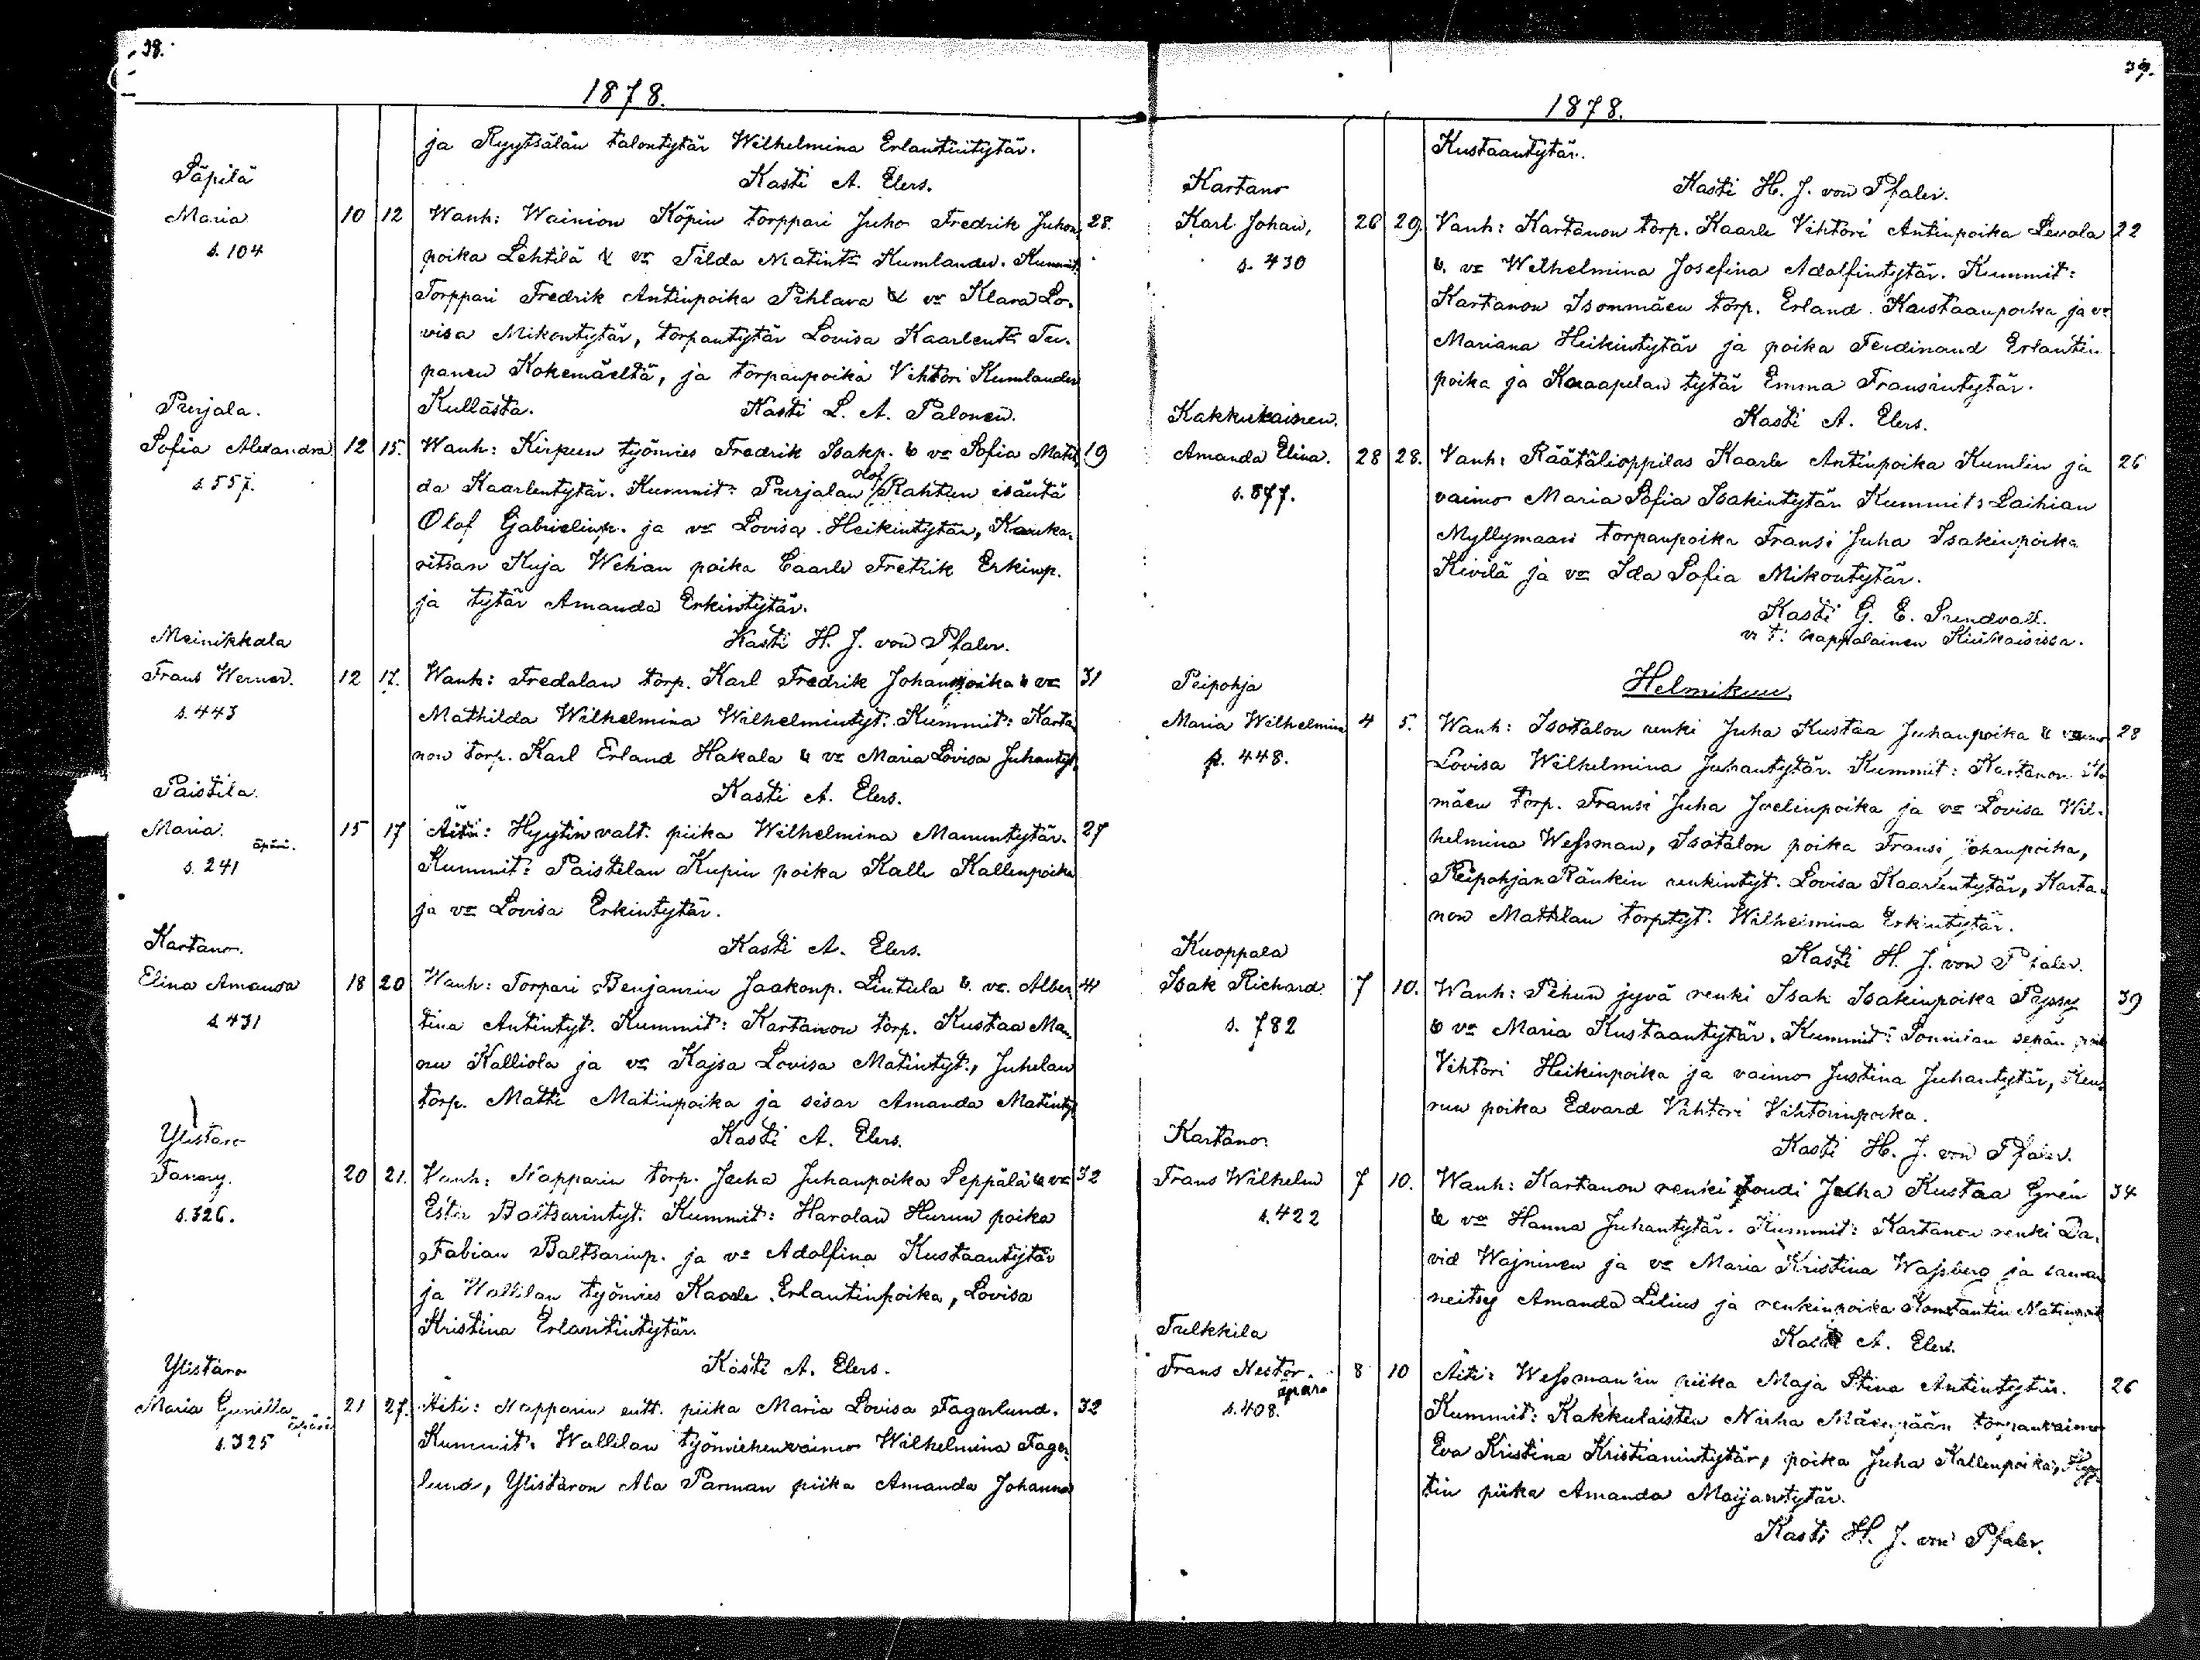 38.
1878.
ja Ryytsälän talontytär Wilhelmina Erlantintytär.
Säpilä
Kasti A. Elers.
Maria 10 12 Wanh: Wainion Köpin torppari Juho Fredrik Juhon 28.
s. 104
poika Lehtilä & vo Tilda Matintr Kumlander. Kummit:
Torppari Fredrik Antinpoika Pihlava & vo Klara Lo-
visa Mikontytär, torpantytär Lovisa Kaarlentr Tu-
panen Kokemäeltä, ja torpanpoika Vihtori Kumlander
Purjala.
Kullasta. Kasti L. A. Palonen.
Sofia Alexandra 12 15. Wanh: Kirpun työmies Fredrik Isakp. & vo Sofia Matil 19
s. 557.
da Kaarlentytär. Kummit: Purjalan olof Rahtun isäntä
Olof Gabrielinp. ja vo Lovisa Heikintytär, Kauka-
ritsan Kuja Wehan poika Caarle Fretrik Erkinp.
ja tytär Amanda Erkintytär.
Meinikkala
Kasti H. J. von Pfaler.
Frans Werner. 12 17. Wanh: Fredalan torp. Karl Fredrik Johanpoika & vo 31
s. 443
Mathilda Wilhelmina Wilhelmintyt. Kummit: Karta
non torp. Karl Erland Hakala & vo Maria Lovisa Juhantyt.
Paistila.
Kasti A. Elers.
Maria. äpärä. 15 17 Äiti: Hyytin valt. piika Wilhelmina Manuntytär. 27
s. 241
Kummit: Paistilan Kupin poika Kalle Kallenpoika
ja vo Lovisa Erkintytär.
Kartano.
Kasti A. Elers.
Elina Amanda 18 20 Wanh: Torpari Benjamin Jaakonp. Lintula & vo. Alber 41
s. 431
tina Antintyt. Kummit: Kartanon torp. Kustaa Ma-
nu Kalliola ja vo Kajsa Lovisa Matintyt., Juhelan
torp. Matti Matinpoika ja sisar Amanda Matintyt
Ylistaro
Kasti A. Elers.
Fanny. 20 21. Vanh: Napparin torp. Juha Juhanpoika Seppälä & vo 32
s. 326.
Ester Baltsarintyt. Kummit: Harolan Hurun poika
Fabian Baltsarinp. ja vo Adolfina Kustaantytär
ja Wallilan työmies Kaarle Erlantinpoika, Lovisa
Kristina Erlantintytär.
Ylistaro
Kasti A. Elers.
Maria Gunilla äpärä 21 27. Äiti: Napparin entt. piika Maria Lovisa Fagerlund. 32
s. 325
Kummit: Wallilan työmiehenvaimo Wilhelmina Fager-
lund, Ylistaron Ala Parman piika Amanda Johanna
39.
1878.
Kustaantytär.
Kartano
Kasti H. J. von Pfaler.
Karl Johan, 26 29. Vanh: Kartanon torp. Kaarle Vihtori Antinpoika Levola 22
s. 430
& vo Wilhelmina Josefina Adolfintytär. Kummit:
Kartanon Isonmäen torp. Erland Kustaanpoika ja vo
Mariana Heikintytär ja poika Ferdinand Erlantin
poika ja Kraapelan tytär Emma Fransintytär.
Kakkulainen.
Kasti A. Elers.
Amanda Elina. 28 28. Vanh: Räätälioppilas Kaarle Antinpoika Kumlin ja 26
s. 877.
vaimo Maria Sofia Isakintytär Kummit: Laihian
Myllymaan torpanpoika Fransi Juha Isakinpoika
Kivilä ja vo Ida Sofia Mikontytär.
Kasti G. E. Sundvall.
v. t. kappalainen Kiukaisissa.
Helmikuu.
Peipohja
Maria Wilhelmina 4 5. Wanh: Isotalon renki Juha Kustaa Juhanpoika & vaimo 28
s. 448.
Lovisa Wilhelmina Juhantytär. Kummit: Kartanon Iso
mäen torp. Fransi Juha Joelinpoika ja vo Lovisa Wil-
helmina Wessman, Isotalon poika Fransi Johanpoika,
Peipohjan Ränkin renkintyt. Lovisa Kaarlentytär, Karta-
non Mattilan torptyt. Wilhelmina Erkintytär.
Kuoppala
Kasti H. J. von Pfaler.
Isak Richard 7 10. Wanh: Pihun jyvä renki Isak Isakinpoika Pyssy 39
s. 782
& vo Maria Kustaantytär. Kummit: Sonnilan sepän poik
Vihtori Heikinpoika ja vaimo Justina Juhantytär,
run poika Edvard Vihtori Vihtorinpoika.
Kartano.
Kasti H. J. von Pfaler.
Frans Wilhelm 7 10. Wanh: Kartanon renki foudi Juha Kustaa Grén 34
s. 422
& vo Hanna Juhantytär. Kummit: Kartanon renki Da-
vid Wajninen ja vo Maria Kristina Wassberg ja saman
neitsy Amanda Lilius ja renkinpoika Konstantin Matinpoik
Tulkkila
Kasti A. Elers.
Frans Nestor. äpärä 8 10 Äiti: Wessman'in piika Maja Stina Antintytär. 26
s. 408.
Kummit: Kakkulaisten Niuha Mäenpään torpanvaimo
Eva Kristina Kristianintytär, poika Juha Kallenpoika, Hyy-
tin piika Amanda Maijantytär.
Kasti H. J. von Pfaler.